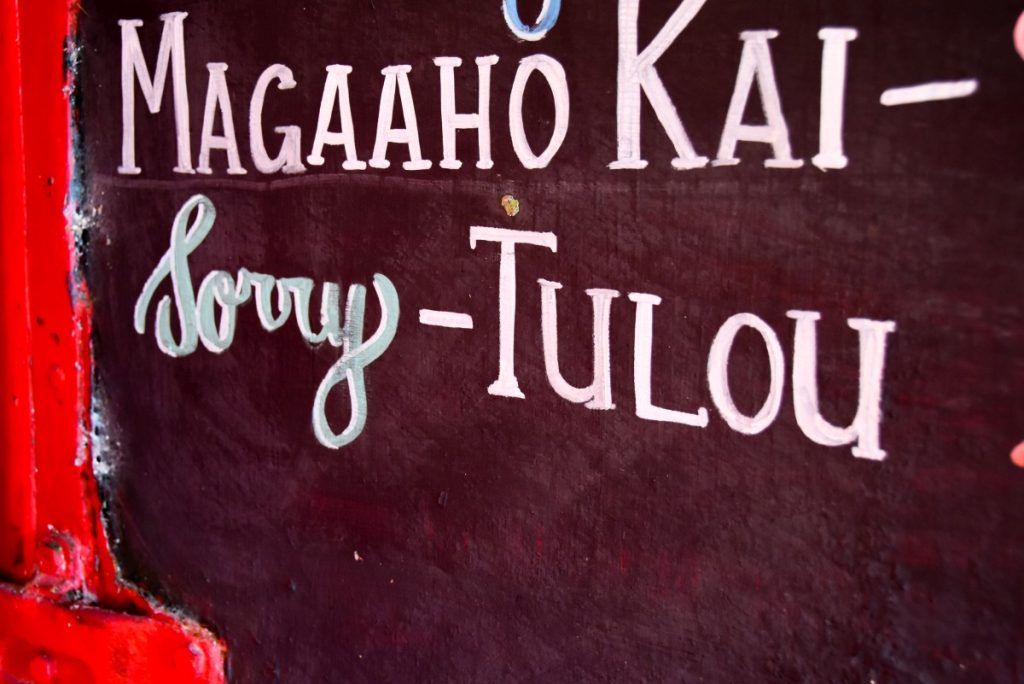 MAGAAHO KAI -
Sorry - TULOU